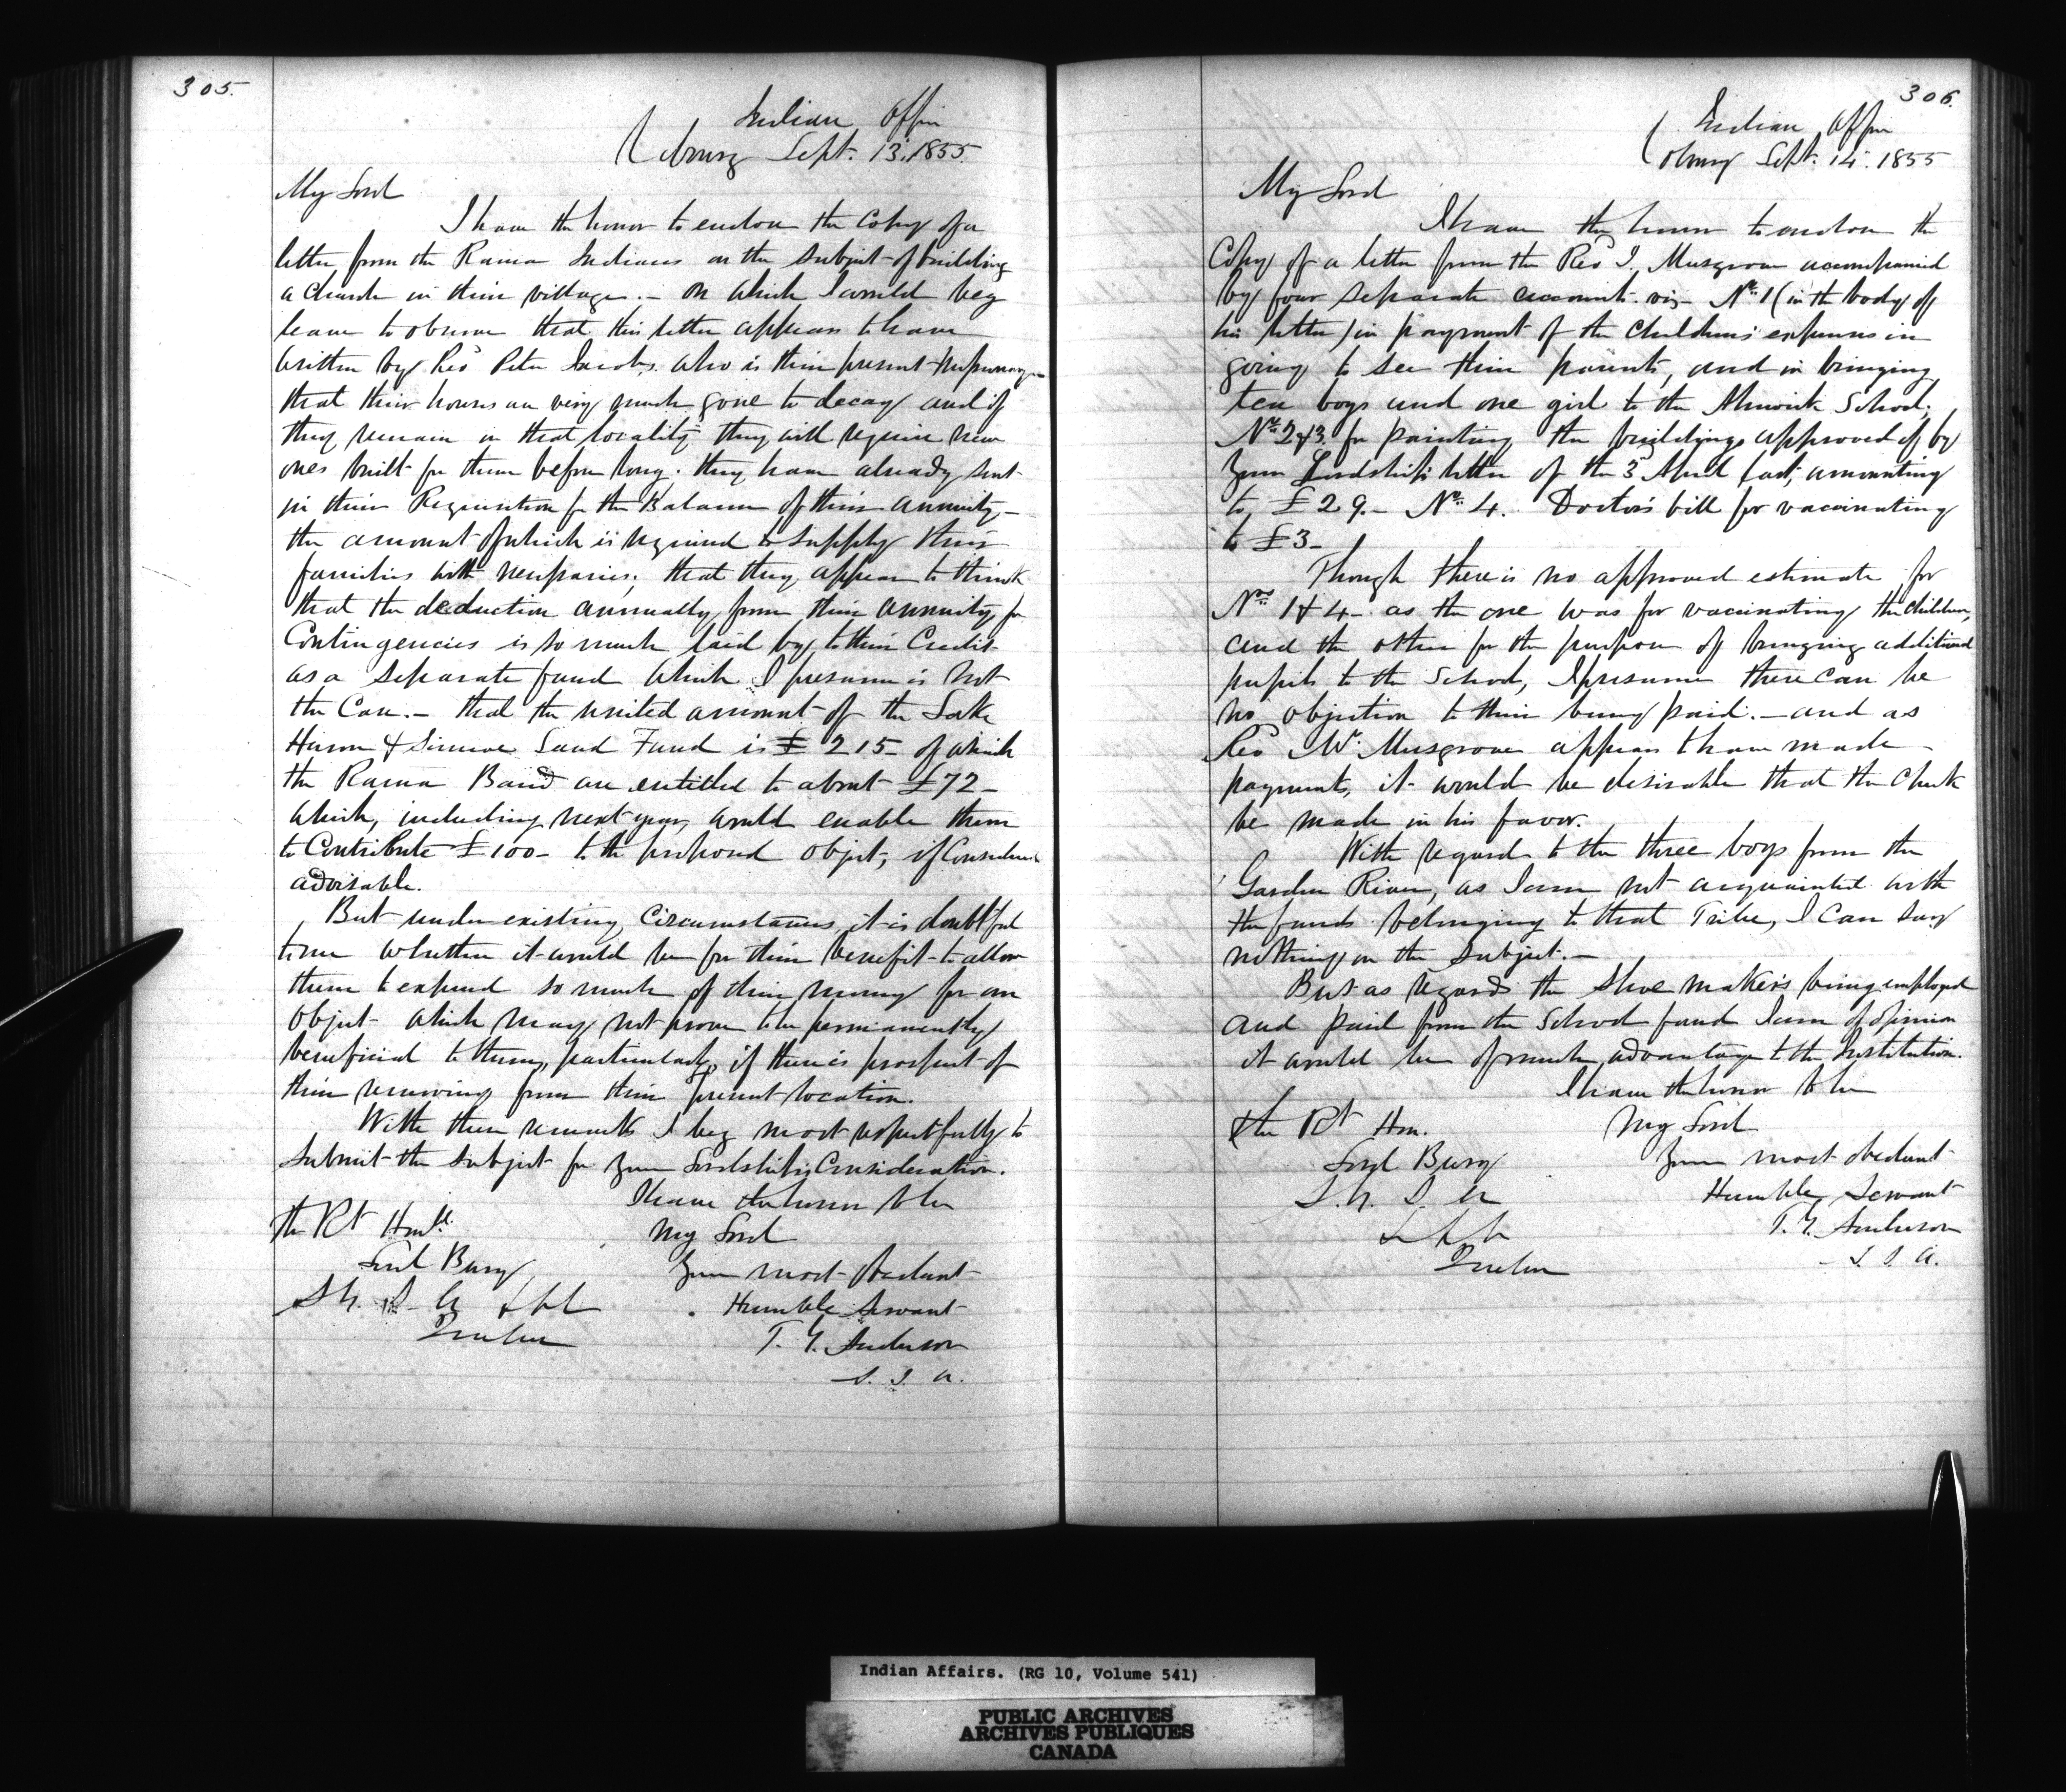 305.
Indian Office
Cobourg Sept. 13. 1855.
My Lord
I have the honor to enclose the Copy of a
letter from the Rama Indians on the subject of building
a Church in their village. — On which I would beg
leave to observe that this letter appears to have
written by Revd Peter Jacobs who is their present Missionary
that their houses are very much gone to decay and if
they remain in that locality they will require new
ones built for them before long. They have already sent
in their Requisition for the Balance of their annuity —
the amount of which is required to supply their
families with necessaries; that they appear to think
that the deduction annually from their annuity for
Contingencies is so much laid by, to their Credit
as a separate fund which I presume is not
the Case. — that the united amount of the Lake
Huron & Simcoe Land Fund is £ 215 — of which
the Rama Band are entitled to about £72 —
which, including next year, would enable them
to Contribute £100 — to the proposed object, if Considered
advisable.
But under existing Circumstances, it is doubtful
to me whether it would be for their benefit to allow
them to expend so much of their money for an
object which may not prove to be permanently
beneficial to them, particularly if there is prospect of
their removing from their present location.
With these remarks I beg most respectfully to
submit the subject for Your Lordship's Consideration.
I have the honor to be
The Rt Honble
My Lord
Lord Bury
Your most obedient
S. G. I. A
Humble Servant
Quebec
T. G. Anderson
S. I. A.
306.
Indian Office
Cobourg Sept. 14. 1855
My Lord
I have the honor to enclose the
Copy of a letter from the Revd J. Musgrove accompanied
by four separate accounts. viz — No. 1 (in the body of
his letter) in payment of the Childrens' expenses in
going to see their parents, and in bringing
ten boys and one girl to the Alnwick School;
Nos. 2 & 3. for painting the buildings approved of by
Your Lordship's letter of the 3d April last, amounting
to £ 29. — No. 4. Doctor's bill for vaccinating
to £3 —
Though there is no approved estimate for
Nos. 1 & 4 — as the one was for vaccinating the Children,
and the other for the purpose of bringing additional
pupils to the School, I presume there can be
no objection to their being paid. — and as
Revd Mr. Musgrove appears to have made
payments, it would be desirable that the Check
be made in his favor.
With regard to the three boys from the
Garden River, as I am not acquainted with
the funds belonging to that Tribe, I Can say
nothing on the Subject. —
But as regards the Shoe makers being employed
and paid from the School fund I am of opinion
it would be of much advantage to the Institution.
I have the honor to be
The Rt Hon.
My Lord
Lord Bury
Your most obedient
S. G. I. A
Humble Servant
T. G. Anderson
Quebec
S. I. A.
Indian Affairs. (RG 10, Volume 541)
PUBLIC ARCHIVES
ARCHIVES PUBLIQUES
CANADA